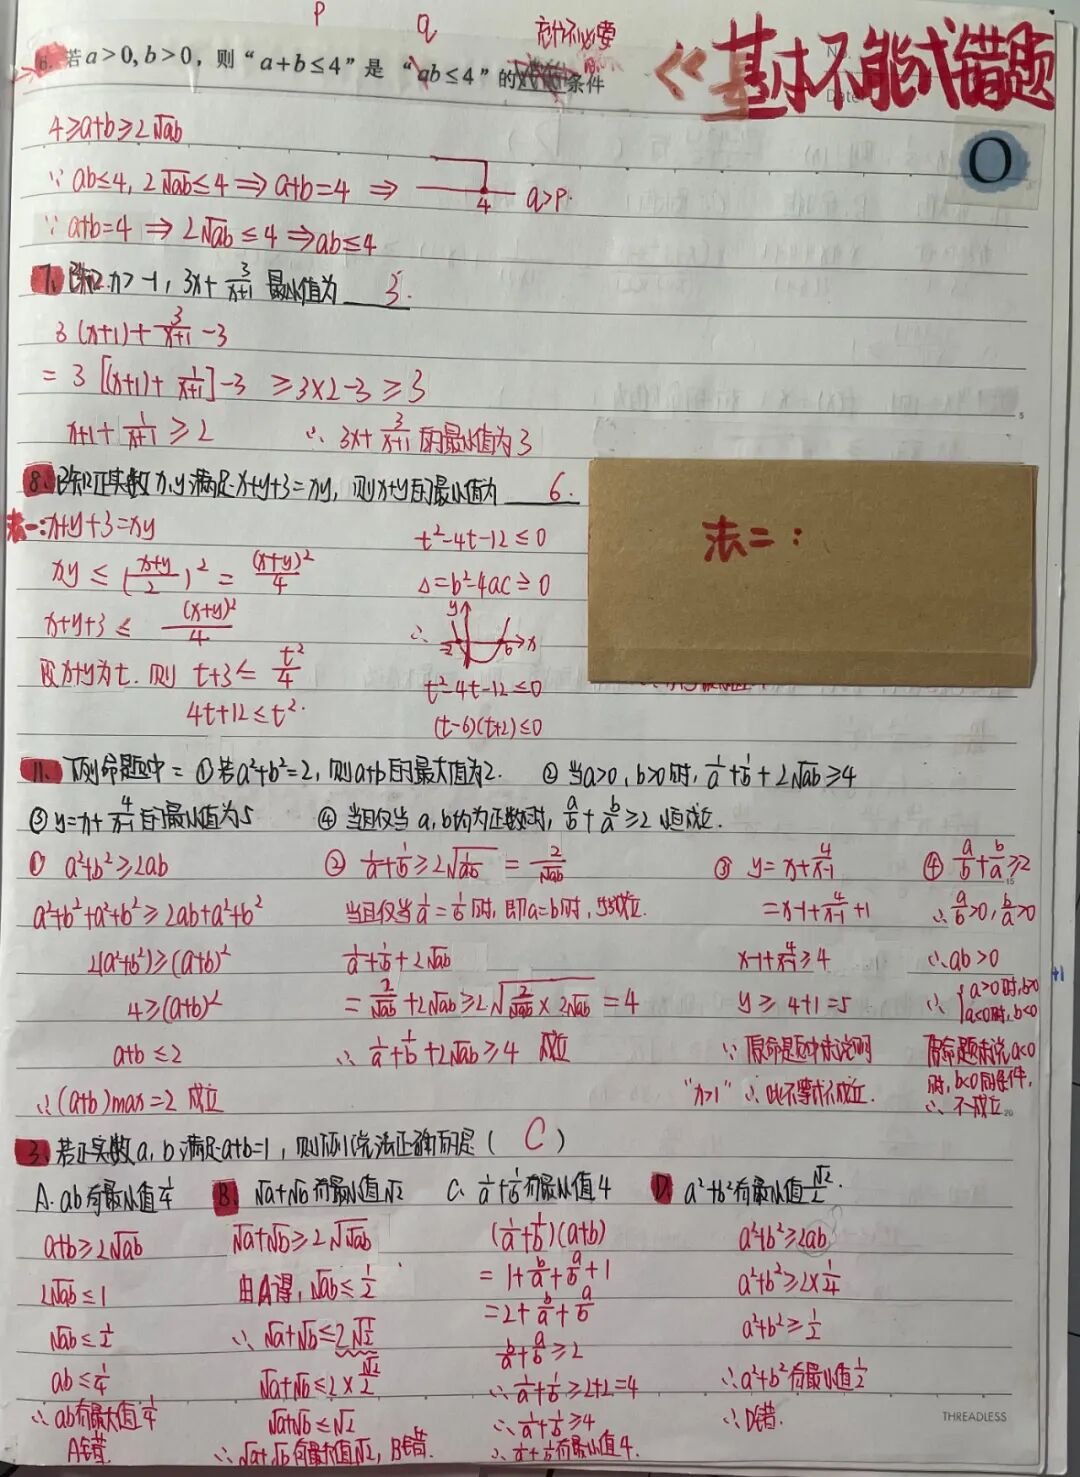 P q 充分不必要
6. 若a>0,b>0，则“a+b≤4”是“ab≤4”的条件
<<基本不等式错题
O
4≥a+b≥2√ab
∵ ab≤4, 2√ab≤4 ⇒ a+b=4 ⇒ 4 q>P.
∵ a+b=4 ⇒ 2√ab≤4 ⇒ ab≤4
7. 已知x>-1, 3x+3/(x+1) 最小值为 3.
3(x+1)+3/(x+1)-3
=3[(x+1)+1/(x+1)]-3 ≥3×2-3≥3
x+1+1/(x+1)≥2 ∴ 3x+3/(x+1)的最小值为3
8. 已知正实数x,y满足x+y+3=xy, 则x+y的最小值为 6.
法一: x+y+3=xy
xy≤((x+y)/2)²=(x+y)²/4
x+y+3≤(x+y)²/4
设x+y为t. 则 t+3≤t²/4
4t+12≤t².
t²-4t-12≤0
Δ=b²-4ac≥0
∴ y -2 6 x
t²-4t-12≤0
(t-6)(t+2)≤0
法二：
11. 下列命题中= ①若a²+b²=2, 则a+b的最大值为2. ②当a>0, b>0时, 1/a+1/b+2√ab≥4
③y=x+4/(x-1)的最小值为5 ④当且仅当a,b均为正数时, a/b+b/a≥2恒成立.
① a²+b²≥2ab
a²+b²+a²+b²≥2ab+a²+b²
2(a²+b²)≥(a+b)²
4≥(a+b)²
a+b≤2
∴(a+b)max=2 成立
② 1/a+1/b≥2√(1/ab)=2/√ab
当且仅当1/a=1/b时, 即a=b时, 成立.
1/a+1/b+2√ab
=2/√ab+2√ab≥2√(2/√ab×2√ab)=4
∴ 1/a+1/b+2√ab≥4 成立
③ y=x+4/(x-1)
=x-1+4/(x-1)+1
x-1+4/(x-1)≥4
y≥4+1=5
∵ 原命题中未说明
“x>1” ∴此不等式不成立.
④ a/b+b/a≥2
∴ a/b>0, b/a>0
∴ab>0
∴ {a>0时,b>0
a<0时, b<0
原命题未说a<0
时, b<0的条件,
∴ 不成立
+1
3. 若正实数a, b满足a+b=1, 则下列说法正确的是 ( C )
A. ab有最小值1/4 B. √a+√b有最小值√2 C. 1/a+1/b有最小值4 D. a²+b²有最小值√2/2.
a+b≥2√ab
2√ab≤1
√ab≤1/2
ab≤1/4
∴ ab有最大值1/4
A错.
√a+√b≥2√√ab
由A得, √ab≤1/2
∴ √a+√b≤2√(1/2)
√a+√b≤2×√2/2
√a+√b≤√2
∴√a+√b有最大值√2, B错.
(1/a+1/b)(a+b)
=1+b/a+a/b+1
=2+b/a+a/b
b/a+a/b≥2
∴ 1/a+1/b≥2+2=4
∴ 1/a+1/b≥4
∴ 1/a+1/b有最小值4.
a²+b²≥2ab
a²+b²≥2×1/4
a²+b²≥1/2
∴a²+b²有最小值1/2
∴D错.
THREADLESS